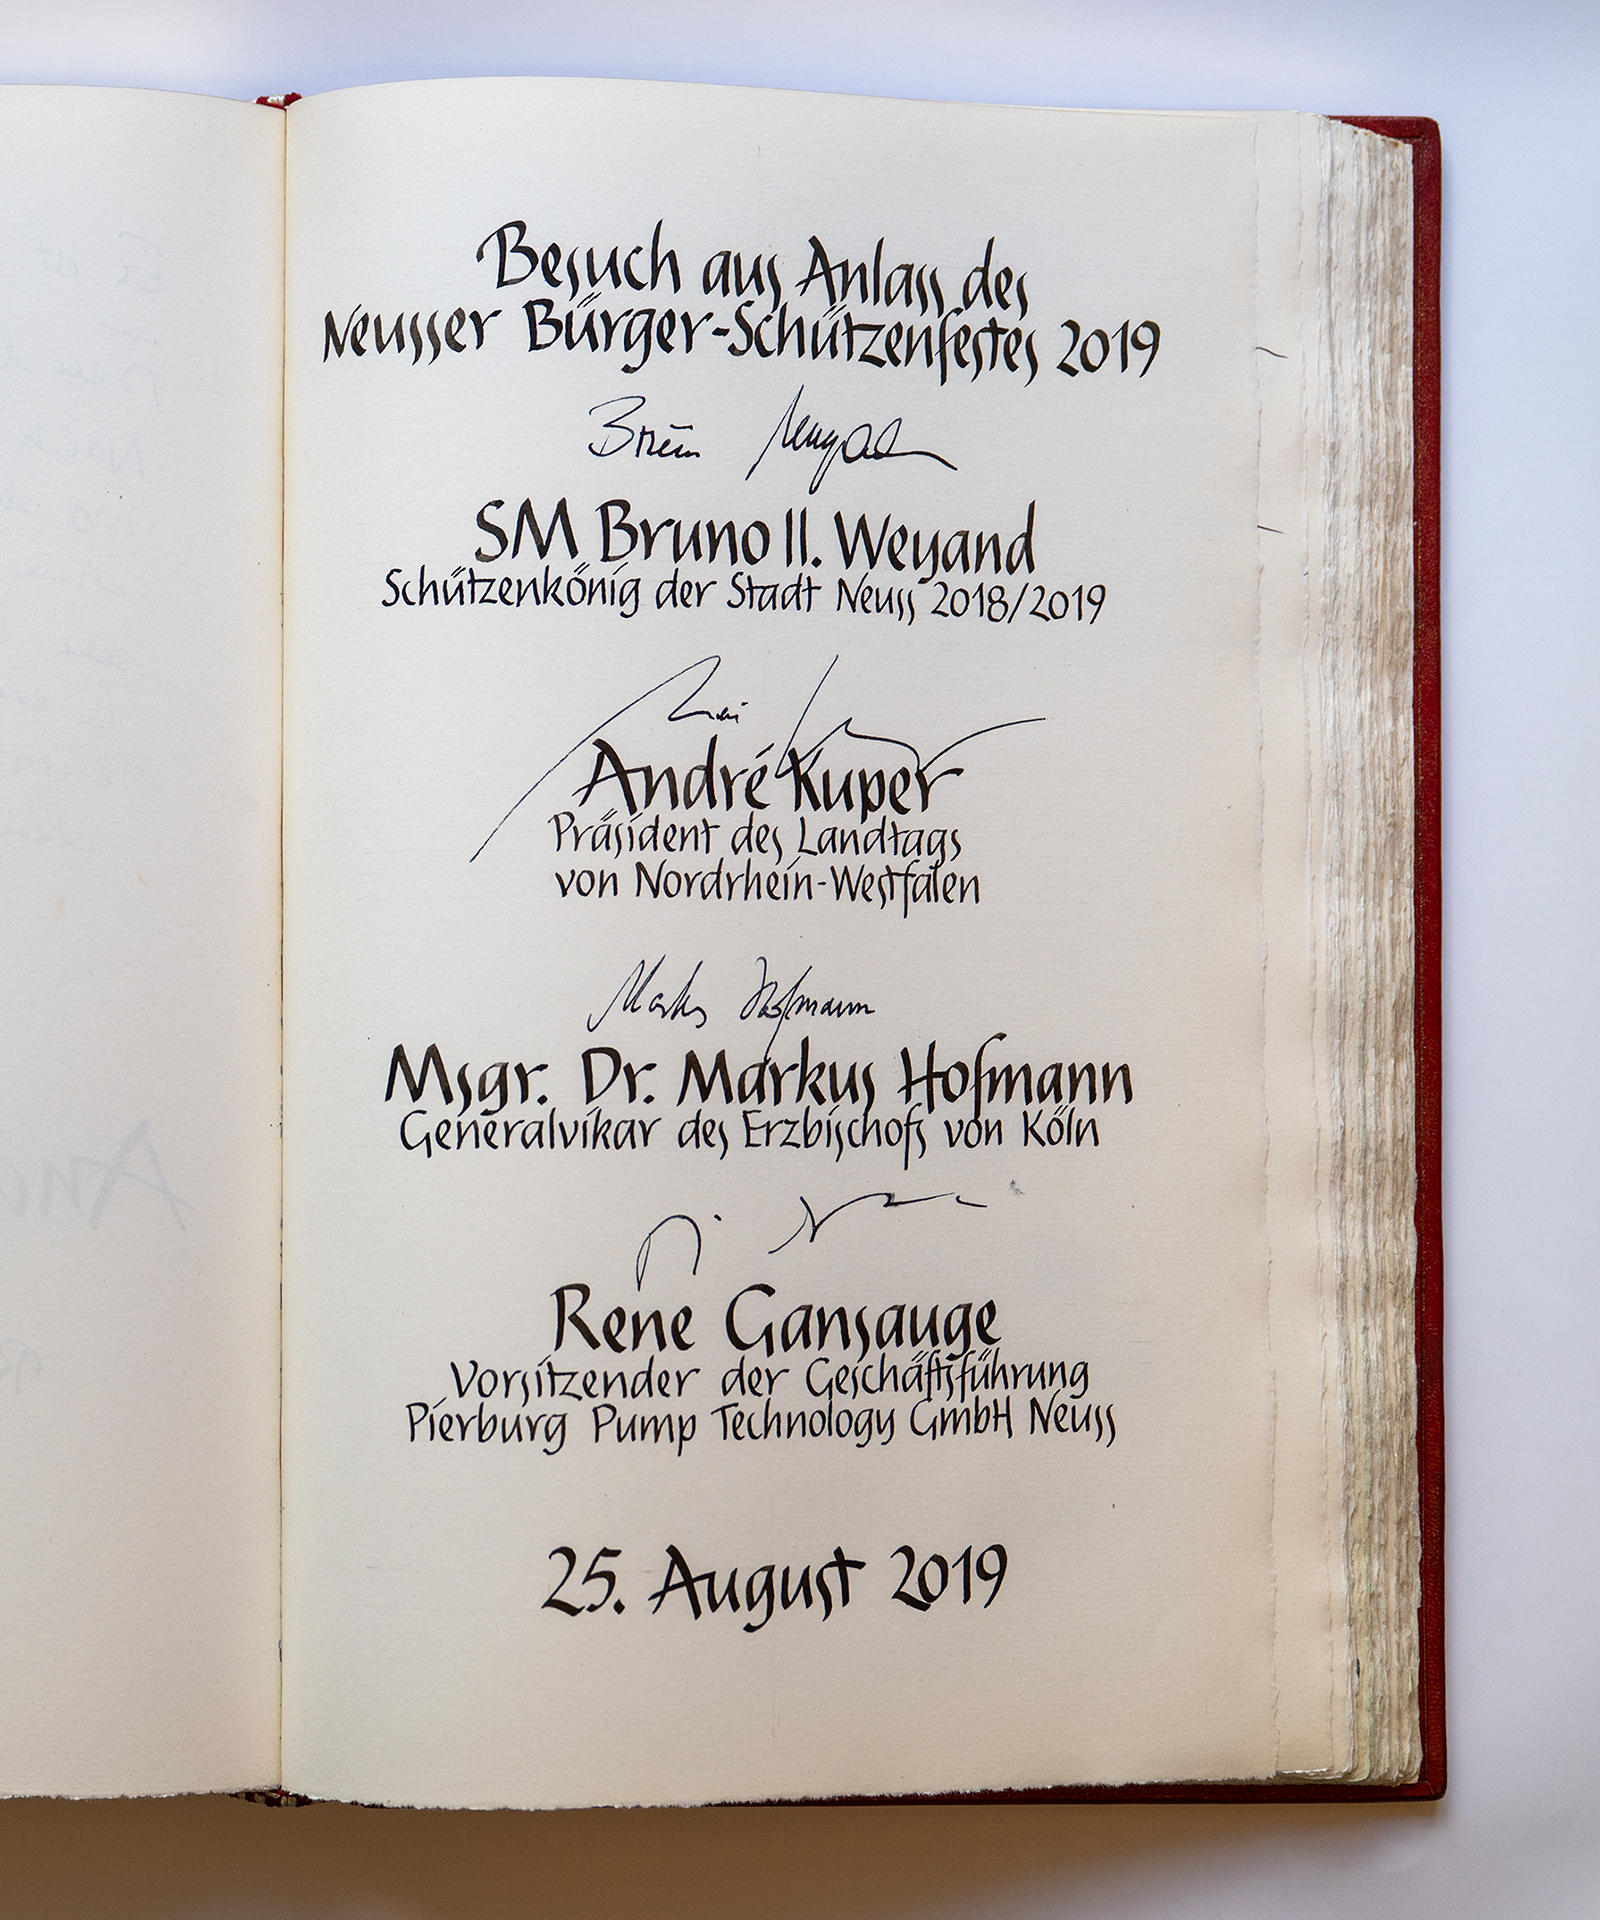 Besuch aus Anlass des
Neusser Bürger-Schützenfestes 2019
SM Bruno II. Weyand
Schützenkönig der Stadt Neuss 2018/2019
André Kuper
Präsident des Landtags
von Nordrhein-Westfalen
Markus Hofmann
Msgr. Dr. Markus Hofmann
Generalvikar des Erzbischofs von Köln
Rene Gansauge
Vorsitzender der Geschäftsführung
Pierburg Pump Technology GmbH Neuss
25. August 2019